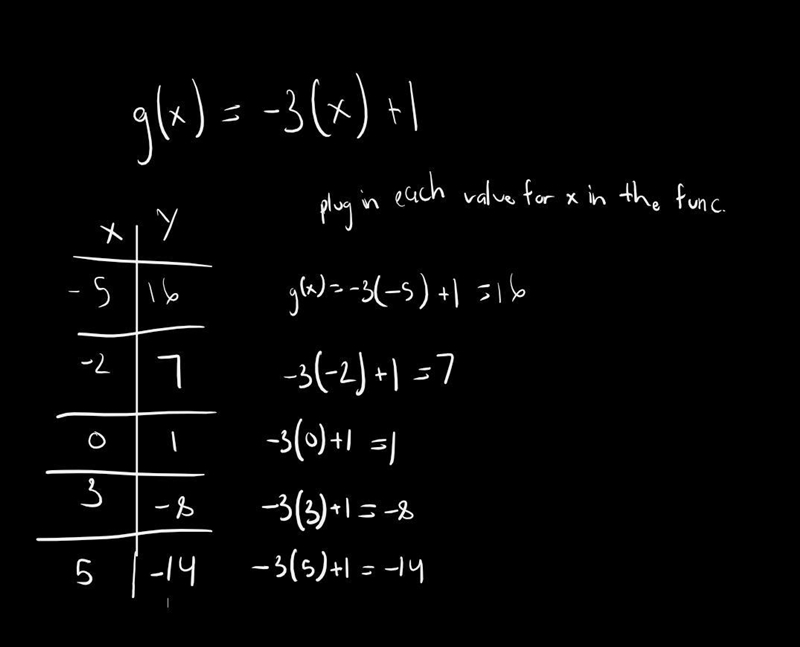 g(x) = -3(x) +1
plug in each value for x in the func.
x y
-5 16 g(x)=-3(-5)+1 =16
-2 7 -3(-2)+1 =7
0 1 -3(0)+1 =1
3 -8 -3(3)+1=-8
5 -14 -3(5)+1 = -14